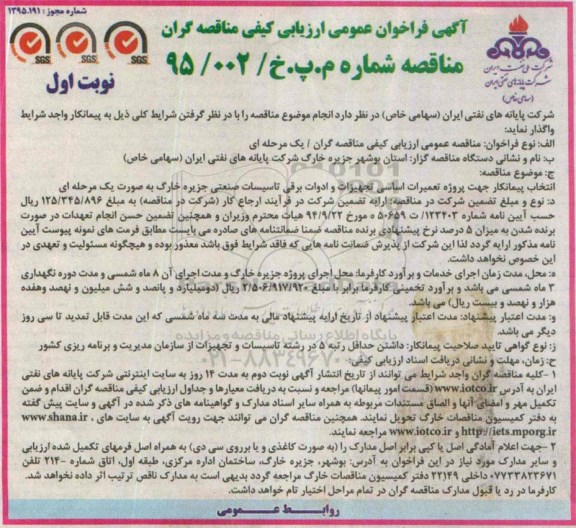 شماره مجوز : ۱۳۹۵.۱۹۱
آگهی فراخوان عمومی ارزیابی کیفی مناقصه گران
مناقصه شماره م.پ.خ/ ۰۰۲/ ۹۵
نوبت اول
SGS SGS SGS
شرکت ملی نفت ایران
شرکت پایانه های نفتی ایران
(سهامی خاص)
شرکت پایانه های نفتی ایران (سهامی خاص) در نظر دارد انجام موضوع مناقصه را با در نظر گرفتن شرایط کلی ذیل به پیمانکار واجد شرایط
واگذار نماید:
الف: نوع فراخوان: مناقصه عمومی ارزیابی کیفی مناقصه گران / یک مرحله ای
ب: نام و نشانی دستگاه مناقصه گزار: استان بوشهر جزیره خارگ شرکت پایانه های نفتی ایران (سهامی خاص)
ج: موضوع مناقصه:
انتخاب پیمانکار جهت پروژه تعمیرات اساسی تجهیزات و ادوات برقی تاسیسات صنعتی جزیره خارگ به صورت یک مرحله ای
د: نوع و مبلغ تضمین شرکت در مناقصه: ارایه تضمین شرکت در فرآیند ارجاع کار (شرکت در مناقصه) به مبلغ ۱۲۵/۳۴۵/۸۹۶ ریال
حسب آیین نامه شماره ۱۲۳۴۰۲/ت ۵۰۶۵۹ ه مورخ ۹۴/۹/۲۲ هیأت محترم وزیران و همچنین تضمین حسن انجام تعهدات در صورت
برنده شدن به میزان ۵ درصد نرخ پیشنهادی برنده مناقصه ضمنا ضمانتنامه های صادره می بایست مطابق فرمت های نمونه پیوست آیین
نامه مذکور ارایه گردد لذا این شرکت از پذیرش ضمانت نامه هایی که فاقد شرایط فوق باشد معذور بوده و هیچگونه مسئولیت و تعهدی در
این خصوص نخواهد داشت.
ه: محل، مدت زمان اجرای خدمات و برآورد کارفرما: محل اجرای پروژه جزیره خارگ و مدت اجرای آن ۸ ماه شمسی و مدت دوره نگهداری
۳ ماه شمسی می باشد و برآورد تخمینی کارفرما برابر با مبلغ ۲/۵۰۶/۹۱۷/۹۲۰ ریال (دومیلیارد و پانصد و شش میلیون و نهصد وهفده
هزار و نهصد و بیست ریال) می باشد.
و: مدت اعتبار پیشنهاد: مدت اعتبار پیشنهاد از تاریخ ارایه پیشنهاد مالی به مدت سه ماه شمسی که این مدت قابل تمدید تا سی روز
دیگر می باشد.
ز: نوع گواهی تایید صلاحیت پیمانکار: داشتن حداقل رتبه ۵ در رشته تاسیسات و تجهیزات از سازمان مدیریت و برنامه ریزی کشور
ح: زمان، مهلت و نشانی دریافت اسناد ارزیابی کیفی
۱ -کلیه مناقصه گران واجد شرایط می توانند از تاریخ انتشار آگهی نوبت دوم به مدت ۱۴ روز به سایت اینترنتی شرکت پایانه های نفتی
ایران به آدرس www.iotco.ir (قسمت امور پیمانها) مراجعه و نسبت به دریافت معیارها و جداول ارزیابی کیفی مناقصه گران اقدام و ضمن
تکمیل مهر و امضای آنها و الصاق مستندات مربوطه به همراه سایر اسناد مدارک و گواهینامه های ذکر شده در آگهی و سایت پیش گفته
به دفتر کمیسیون مناقصات خارگ تحویل نمایند. همچنین مناقصه گران می توانند جهت رویت آگهی به سایت های www.shana.ir ،
http://iets.mporg.ir و www.iotco.ir مراجعه نمایند.
۲ -جهت اعلام آمادگی اصل یا کپی برابر اصل مدارک را (به صورت کاغذی و یا برروی سی دی) به همراه اصل فرمهای تکمیل شده ارزیابی
و سایر مدارک مورد نیاز در این فراخوان به آدرس: بوشهر، جزیره خارگ، ساختمان اداره مرکزی، طبقه اول، اتاق شماره ۲۱۴- تلفن
۰۷۷۳۳۸۲۳۶۷۱ داخلی ۲۲۱۴۹ دفتر کمیسیون مناقصات خارگ مراجعه گردد بدیهی است به مدارک ناقص ترتیب اثر داده نخواهد شد.
کارفرما در رد یا قبول مدارک مناقصه گران در تمام مراحل اختیار تام خواهد داشت.
روابط عمومی
پایگاه اطلاع رسانی مناقصه و مزایده
۰۲۱-۸۸۳۴۹۶۷۰